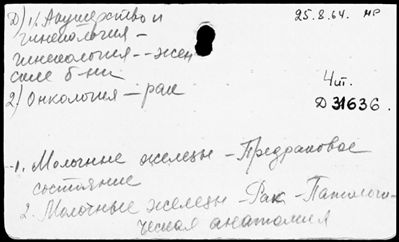 Д) 1. Акушерство и
гинекология –
гинекология -- жен
ские б-ни
2) Онкология – рак
25.8.64. НР
4 шт.
Д 31636.
1. Молочные железы – Предраковое
состояние
2. Молочные железы – Рак – Патологи-
ческая анатомия